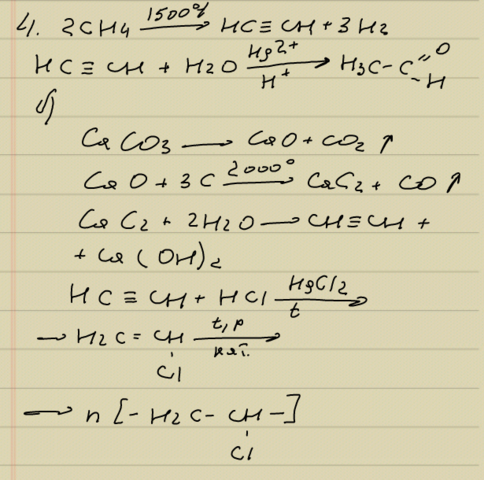 4. 2CH4 —1500°→ HC≡CH + 3H2
HC≡CH + H2O —Hg2+/H+→ H3C-C=O
-H
б)
CaCO3 —→ CaO + CO2 ↑
CaO + 3C —2000°→ CaC2 + CO ↑
CaC2 + 2H2O —→ CH≡CH +
+ Ca(OH)2
HC≡CH + HCl —HgCl2/t→
—→ H2C=CH —t,p/кат.→
Cl
—→ n[-H2C-CH-]
Cl